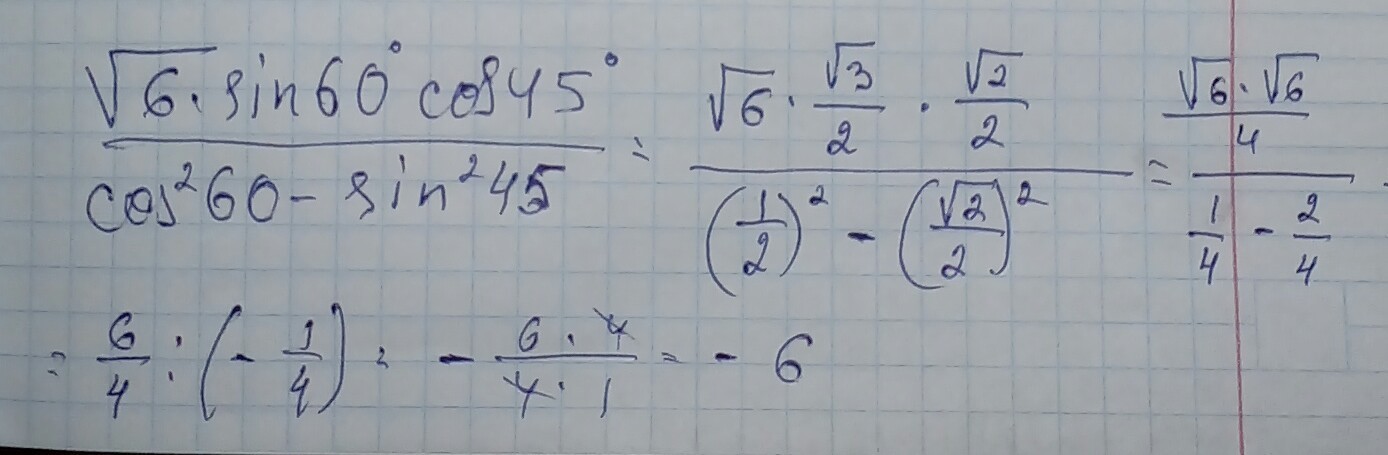 √6 · sin60° cos45° / cos²60 - sin²45 = √6 · √3/2 · √2/2 / (1/2)² - (√2/2)² = √6 · √6 / 4 / 1/4 - 2/4
= 6/4 : (- 1/4) = - 6 · 4 / 4 · 1 = - 6